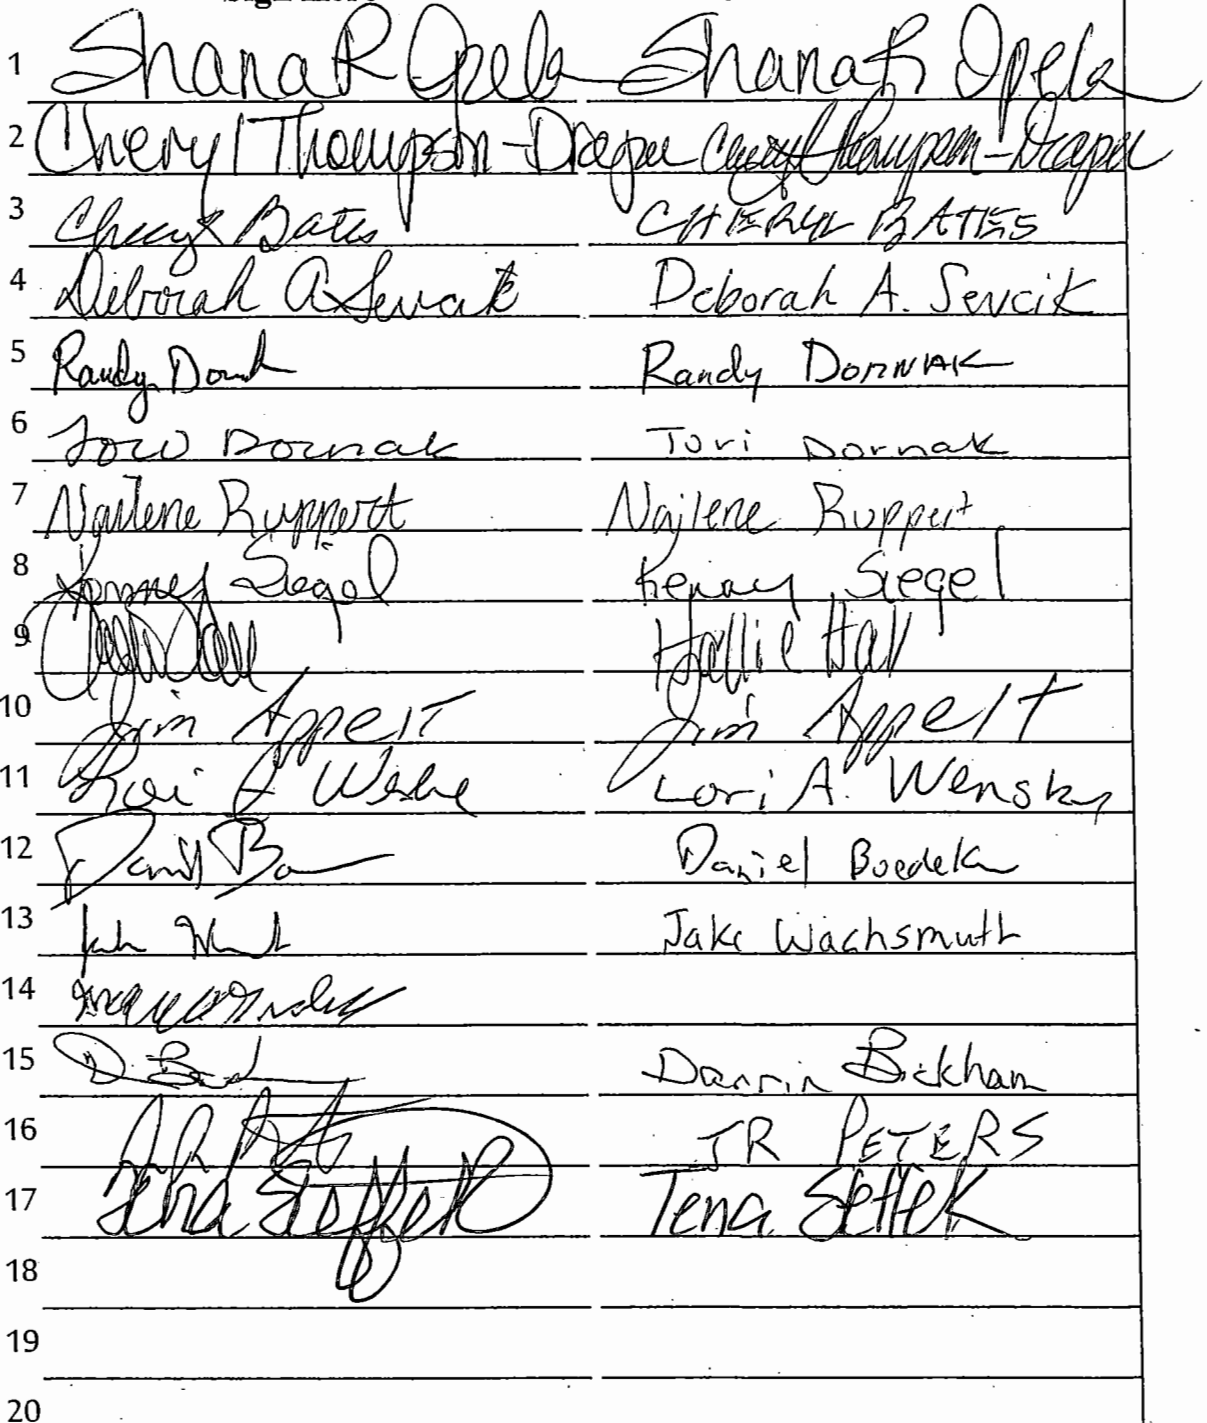 1 Shana R Opela Shana R Opela
2 Cheryl Thompson-Draper Cheryl Thompson-Draper
3 Cheryl Bates CHERYL BATES
4 Deborah A Sevcik Deborah A. Sevcik
5 Randy Randy DORNAK
6 Tori Dornak Tori Dornak
7 Najlene Ruppert Najlene Ruppert
8 Kenney Siegel Kenny Siegel
9 Hallie Hall
10 Jim Appelt Jim Appelt
11 Lori A. Wensky
12 Daniel Boedeker
13 Jake Wachsmuth
14
15 Darrin Bickham
16 JR PETERS
17 Tena Seffek Tena Seffek
18
19
20